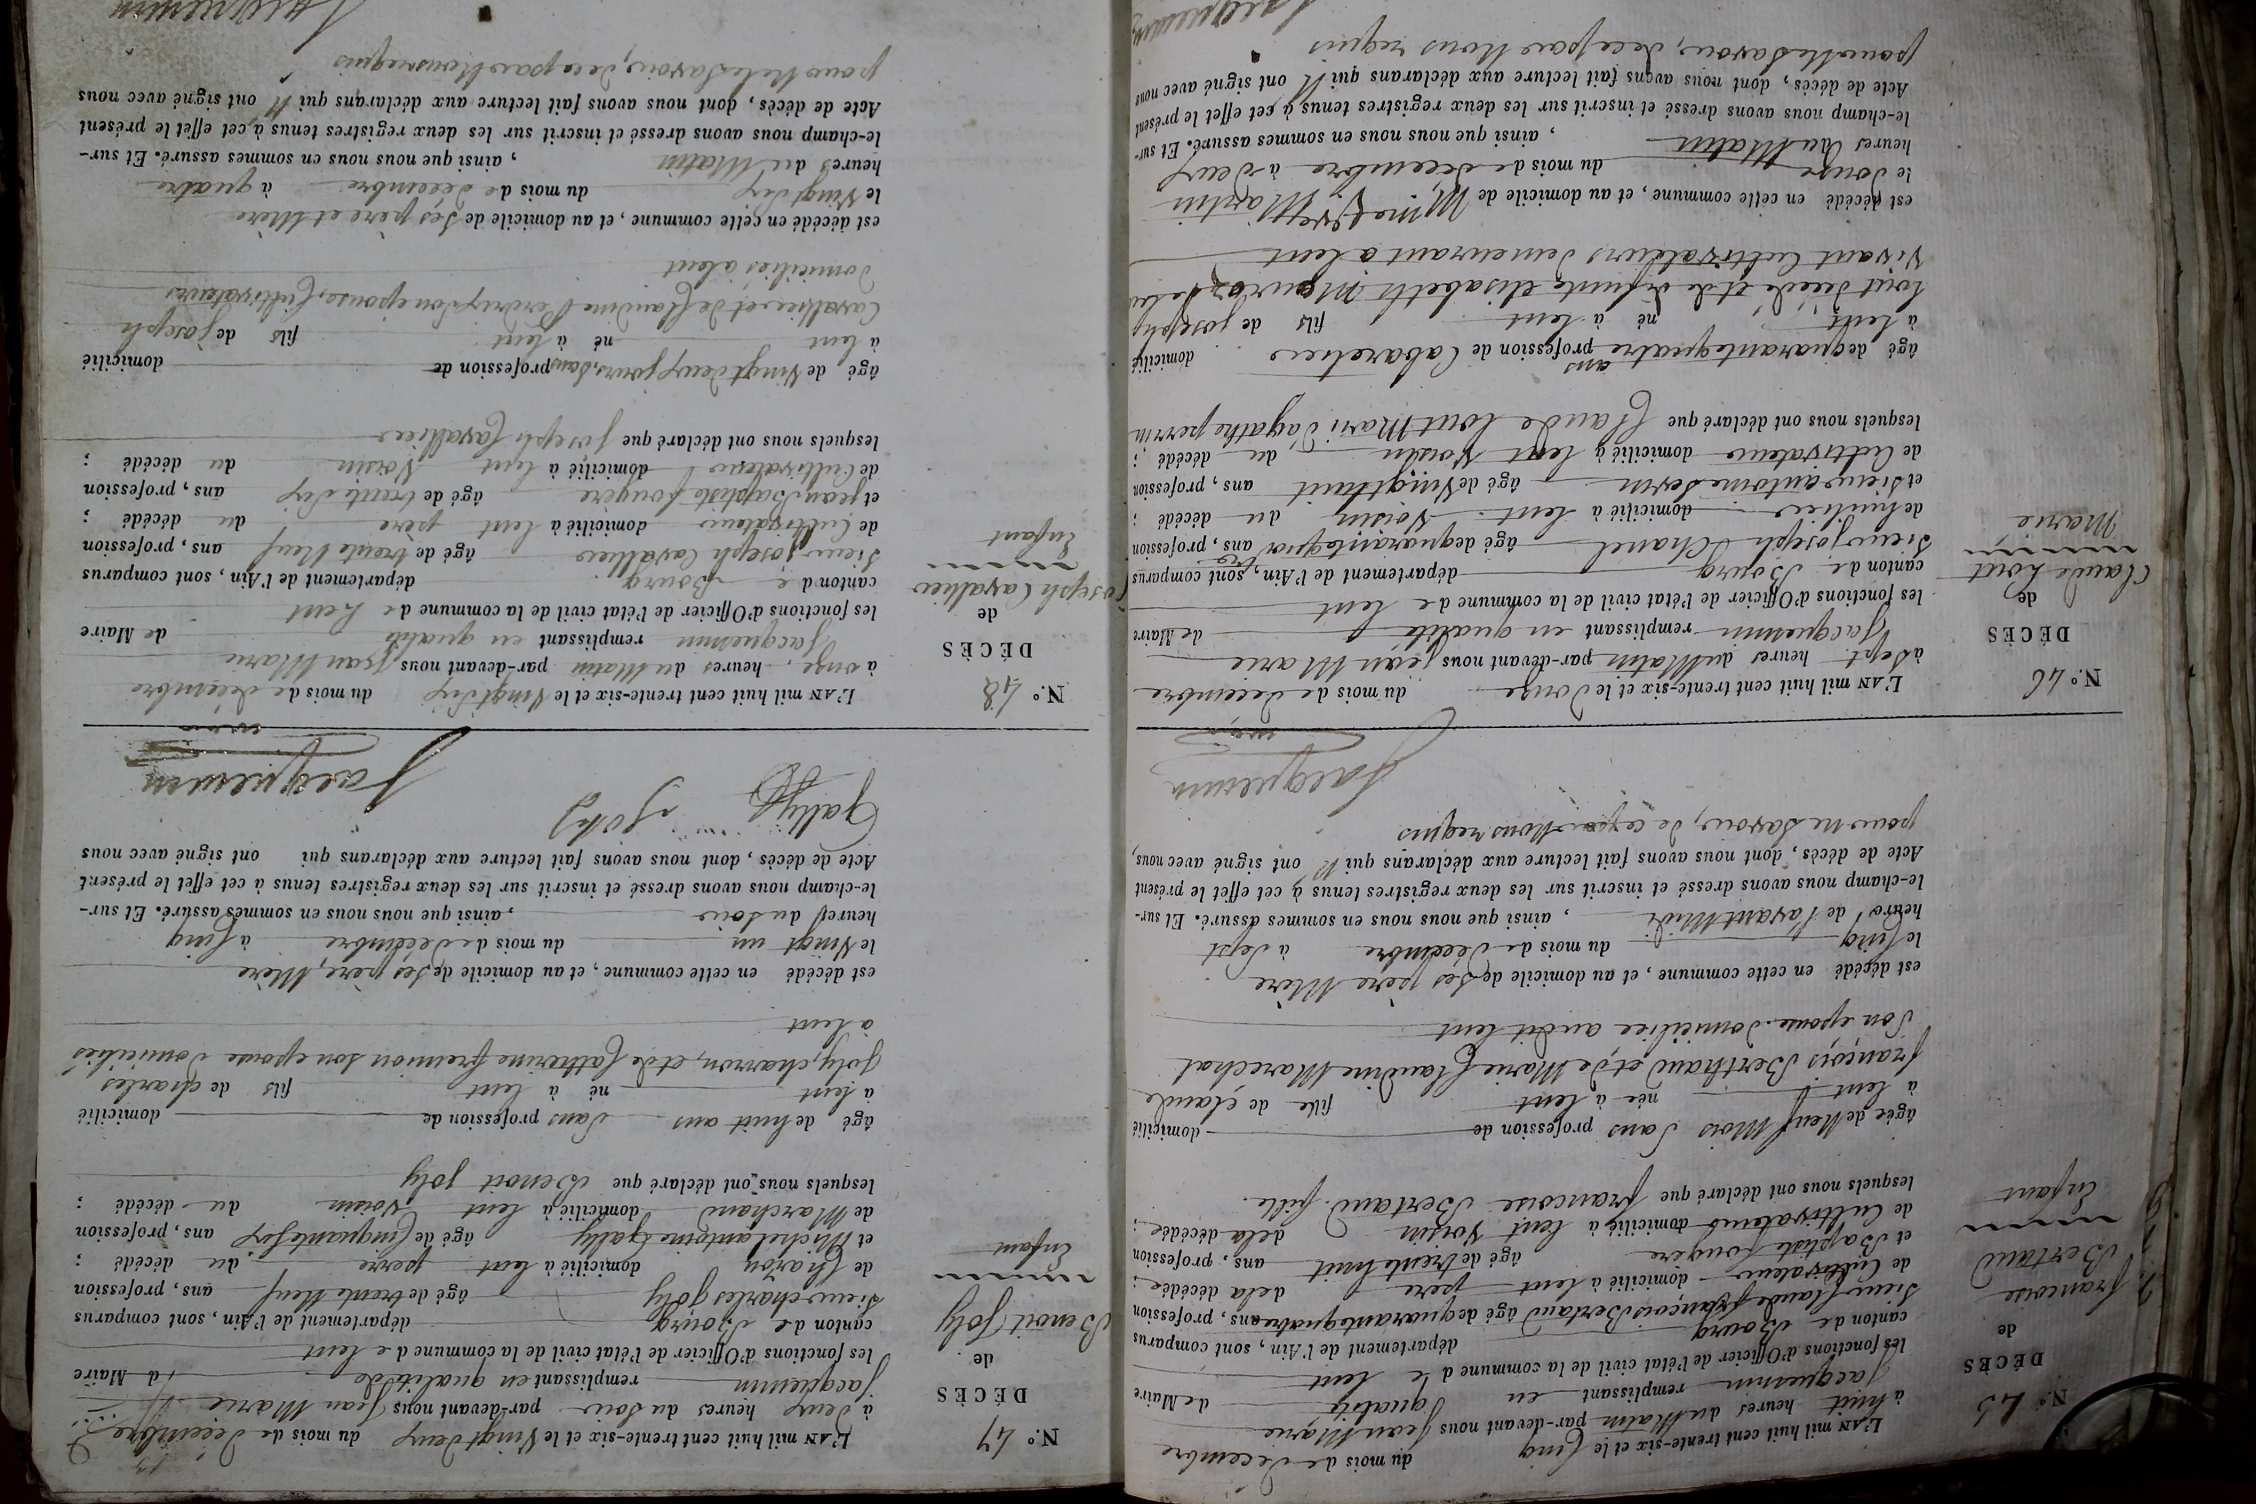 N.° 45
DÉCÈS
de
francoise
Bertaud
Enfant
L'AN mil huit cent trente-six et le Cinq du mois de decembre
à huit heures du Matin par-devant nous Jean Marie
Jacquemin remplissant en qualité de Maire
les fonctions d'Officier de l'état civil de la commune de lent
canton de Bourg département de l'Ain, sont comparus
Sieur Claude françois Bertaud âgé de quarantequatre ans, profession
de Cultivateur domicilié à lent père de la décédée ;
et Baptiste fougère âgé de trente huit ans, profession
de Cultivateur domicilié à lent Voisin de la décédée ;
lesquels nous ont déclaré que francoise Bertaud fille
âgée de Neuf Mois Sans profession de domicilié
à lent née à lent fille de Claude
françois Berthaud et de Marie Claudine Marechal
Son epouse domiciliée audit lent
est décédé en cette commune, et au domicile de Ses père Mère
le Cinq du mois de Décembre à Sept
heures de l'avant Midi, ainsi que nous nous en sommes assuré. Et sur-
le-champ nous avons dressé et inscrit sur les deux registres tenus à cet effet le présent
Acte de décès, dont nous avons fait lecture aux déclarans qui N ont signé avec nous,
pour ne Savoir, de ce par Nous requis
Jacquemin
N.° 46
DÉCÈS
de
Claude Lout
Marié
L'AN mil huit cent trente-six et le Douze du mois de decembre
à Sept heures du Matin par-devant nous jean Marie
Jacquemin remplissant en qualité de Maire
les fonctions d'Officier de l'état civil de la commune de lent
canton de Bourg département de l'Ain, sont comparus
Sieur joseph Chanel âgé de quarantequatre ans, profession
de huilier domicilié à lent Voisin du décédé ;
et Sieur antoine Sevin âgé de Vingthuit ans, profession
de Cultivateur domicilié à lent Voisin du décédé ;
lesquels nous ont déclaré que Claude Lout Mari d'agathe perrin
âgé de quarantequatre ans profession de Cabaretier domicilié
à lent né à lent fils de joseph
Lout décédé et de défunte elisabeth Mouroz de leur
Vivant Cultivateurs demeurant a lent
est décédé en cette commune, et au domicile de Martin
le Douze du mois de decembre à Deux
heures du Matin, ainsi que nous nous en sommes assuré. Et sur-
le-champ nous avons dressé et inscrit sur les deux registres tenus à cet effet le présent
Acte de décès, dont nous avons fait lecture aux déclarans qui N ont signé avec nous
pour Ne Savoir, de ce par Nous requis
Jacquemin
N.° 47
DÉCÈS
de
Benoit Joly
Enfant
L'AN mil huit cent trente-six et le Vingt deux du mois de Décembre
à deux heures du Soir par-devant nous Jean Marie
jacquemin remplissant en qualité de d Maire
les fonctions d'Officier de l'état civil de la commune de lent
canton de Bourg département de l'Ain, sont comparus
Sieur charles joly âgé de trente Neuf ans, profession
de Charon domicilié à lent père du décédé ;
et Michel antoine Gally âgé de Cinquante Six ans, profession
de Marchand domicilié à lent Voisin du décédé ;
lesquels nous ont déclaré que Benoit joly
âgé de huit ans Sans profession de domicilié
à lent né à lent fils de charles
joly, charron, et de Catherine fremion son epouse domiciliés
à lent
est décédé en cette commune, et au domicile de Ses père, Mère
le Vingt un du mois de Décembre à Cinq
heures du Soir, ainsi que nous nous en sommes assuré. Et sur-
le-champ nous avons dressé et inscrit sur les deux registres tenus à cet effet le présent
Acte de décès, dont nous avons fait lecture aux déclarans qui ont signé avec nous
Gally Joly
Jacquemin
N.° 48
DÉCÈS
de
Joseph Cavallier
Enfant
L'AN mil huit cent trente-six et le Vingt Six du mois de décembre
à onze heures du Matin par-devant nous Jean Marie
Jacquemin remplissant en qualité de Maire
les fonctions d'Officier de l'état civil de la commune de Lent
canton de Bourg département de l'Ain, sont comparus
Sieur joseph Cavallier âgé de trente Neuf ans, profession
de Cultivateur domicilié à lent père du décédé ;
et jean Baptiste fougère âgé de trente Six ans, profession
de Cultivateur domicilié à lent Voisin du décédé ;
lesquels nous ont déclaré que joseph Cavallier
âgé de Vingt deux jours, Sans profession de domicilié
à lent né à lent fils de joseph
Cavallier et de Claudine Perdrix Son epouse, Cultivateurs
domiciliés à lent
est décédé en cette commune, et au domicile de Ses père et Mère
le Vingt Six du mois de decembre à quatre
heures du Matin, ainsi que nous nous en sommes assuré. Et sur-
le-champ nous avons dressé et inscrit sur les deux registres tenus à cet effet le présent
Acte de décès, dont nous avons fait lecture aux déclarans qui N ont signé avec nous
pour Ne le Savoir, de ce par Nous requis
Jacquemin